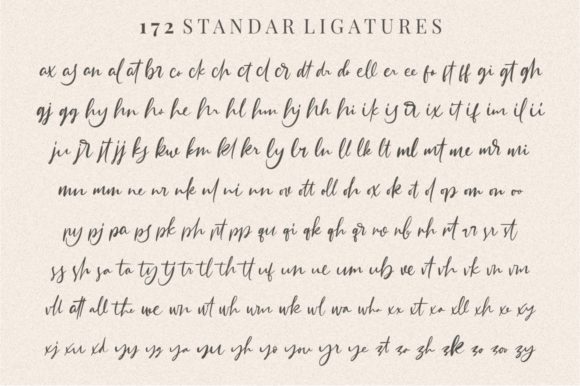 172 STANDAR LIGATURES
ax as an al at br co ck ch ct cl cr dt dr do ell er ee fo ft ff gi gt gh
gj gg hy hn ho he hr hl hm hj hh hi ik is ix it if im il ii
ju jr jt jj ks kw km kl kr ly lr ln ll lk lt ml mt me mr mi
mn mm ne nr nk nl ni nn ov ott oll oh ox ok ot ol op om on oo
py pj pa ps pk ph pt pp qu qi qk qh qr no nb nh rt vr sr st
ss sh sa ta ty tj tr tl th tt uf un ue um ub ve vt vh vk vn vm
vll att all the we wn wt wh wm wk wl wa who xx xt xo xll xh xe xy
xj xu xd yy yg ya yu yh yo you yr ye zt za zh zk zo zoo zy